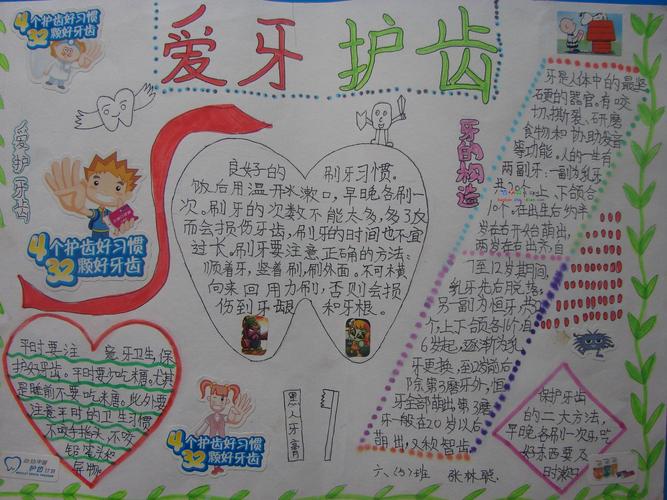 4个护齿好习惯
32颗好牙齿
爱牙护齿
爱护牙齿
4个护齿好习惯
32颗好牙齿
良好的刷牙习惯。
饭后用温开水漱口,早晚各刷一
次。刷牙的次数不能太多,多了反
而会损伤牙齿,刷牙的时间也不宜
过长。刷牙要注意正确的方法:
顺着牙,竖着刷,刷外面。不可横
向来回用力刷,否则会损
伤到牙龈和牙根。
牙的构造
牙是人体中的最坚
硬的器官。有咬
切、撕裂、研磨
食物和协助发音
等功能。人的一生有
两副牙:一副为乳牙
共20个,上、下颌合
10个。在出生后约半
岁左右开始萌出,
两岁左右出齐。自
7至12岁期间,
乳牙先后脱落,
另一副为恒牙,共
个,上下颌各16个,自
6岁起,逐渐为乳
牙更换,到12岁前后
除第3磨牙外,恒
牙全部萌出。第3磨
牙一般在20岁以后
萌出,又称智齿。
平时要注意牙卫生,保
护好牙齿。平时要少吃糖。尤其
是睡前不要吃糖。此外要
注意平时的卫生习惯
不吸手指头、不咬
铅笔头和
异物。
4个护齿好习惯
32颗好牙齿
黑人牙膏
保护牙齿
的二大方法,
早晚各刷一次牙,吃
好东西要及
时漱口
六(5)班 张林聪